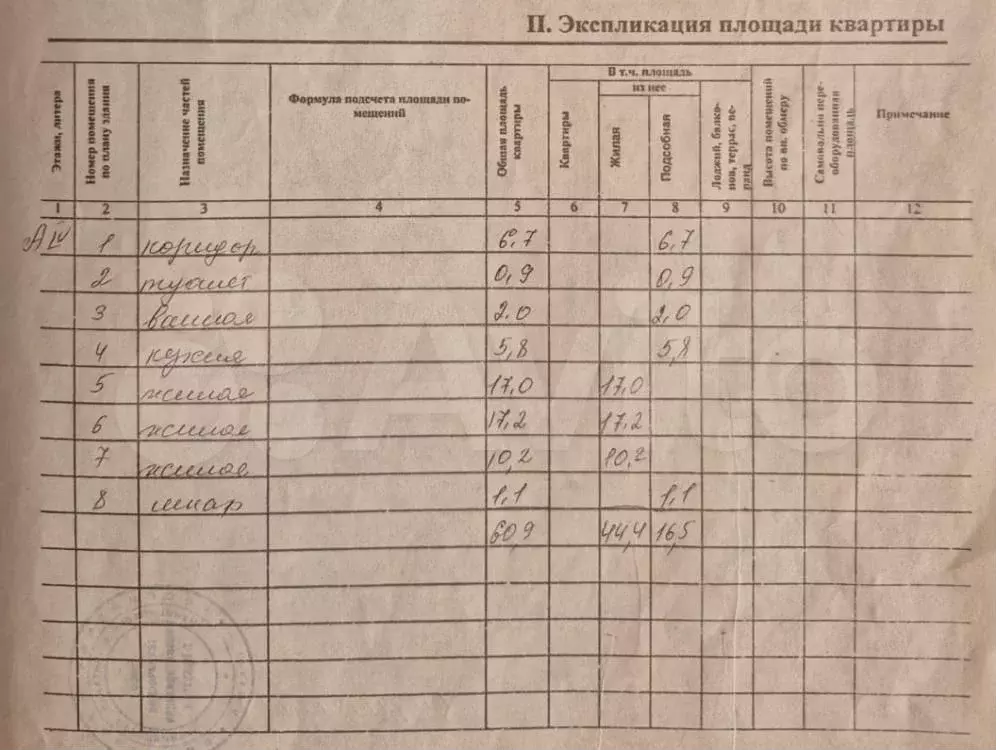 II. Экспликация площади квартиры
Этажи, литера
Номер помещения по плану здания
Назначение частей помещения
Формула подсчета площади по-
мещений
Общая площадь квартиры
В т.ч. площадь
из нее
Квартиры
Жилая
Подсобная
Лоджий, балко-
нов, террас, ве-
ранд
Высота помещений по вн. обмеру
Самовольно пере-
оборудованная площадь
Примечание
1 2 3 4 5 6 7 8 9 10 11 12
А IV 1 коридор 6,7 6,7
2 туалет 0,9 0,9
3 ванная 2.0 2,0
4 кухня 5,8 5,8
5 жилая 17,0 17,0
6 жилая 17,2 17,2
7 жилая 10,2 10,2
8 шкаф 1,1 1,1
60,9 44,4 16,5
Avito